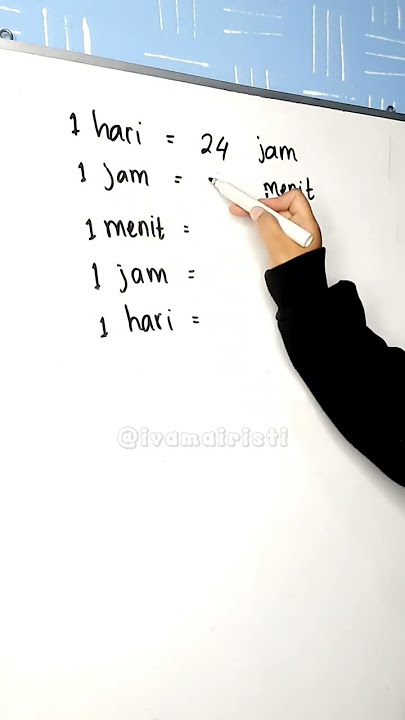 1 hari = 24 jam
1 jam = menit
1 menit =
1 jam =
1 hari =
@ivamairisti